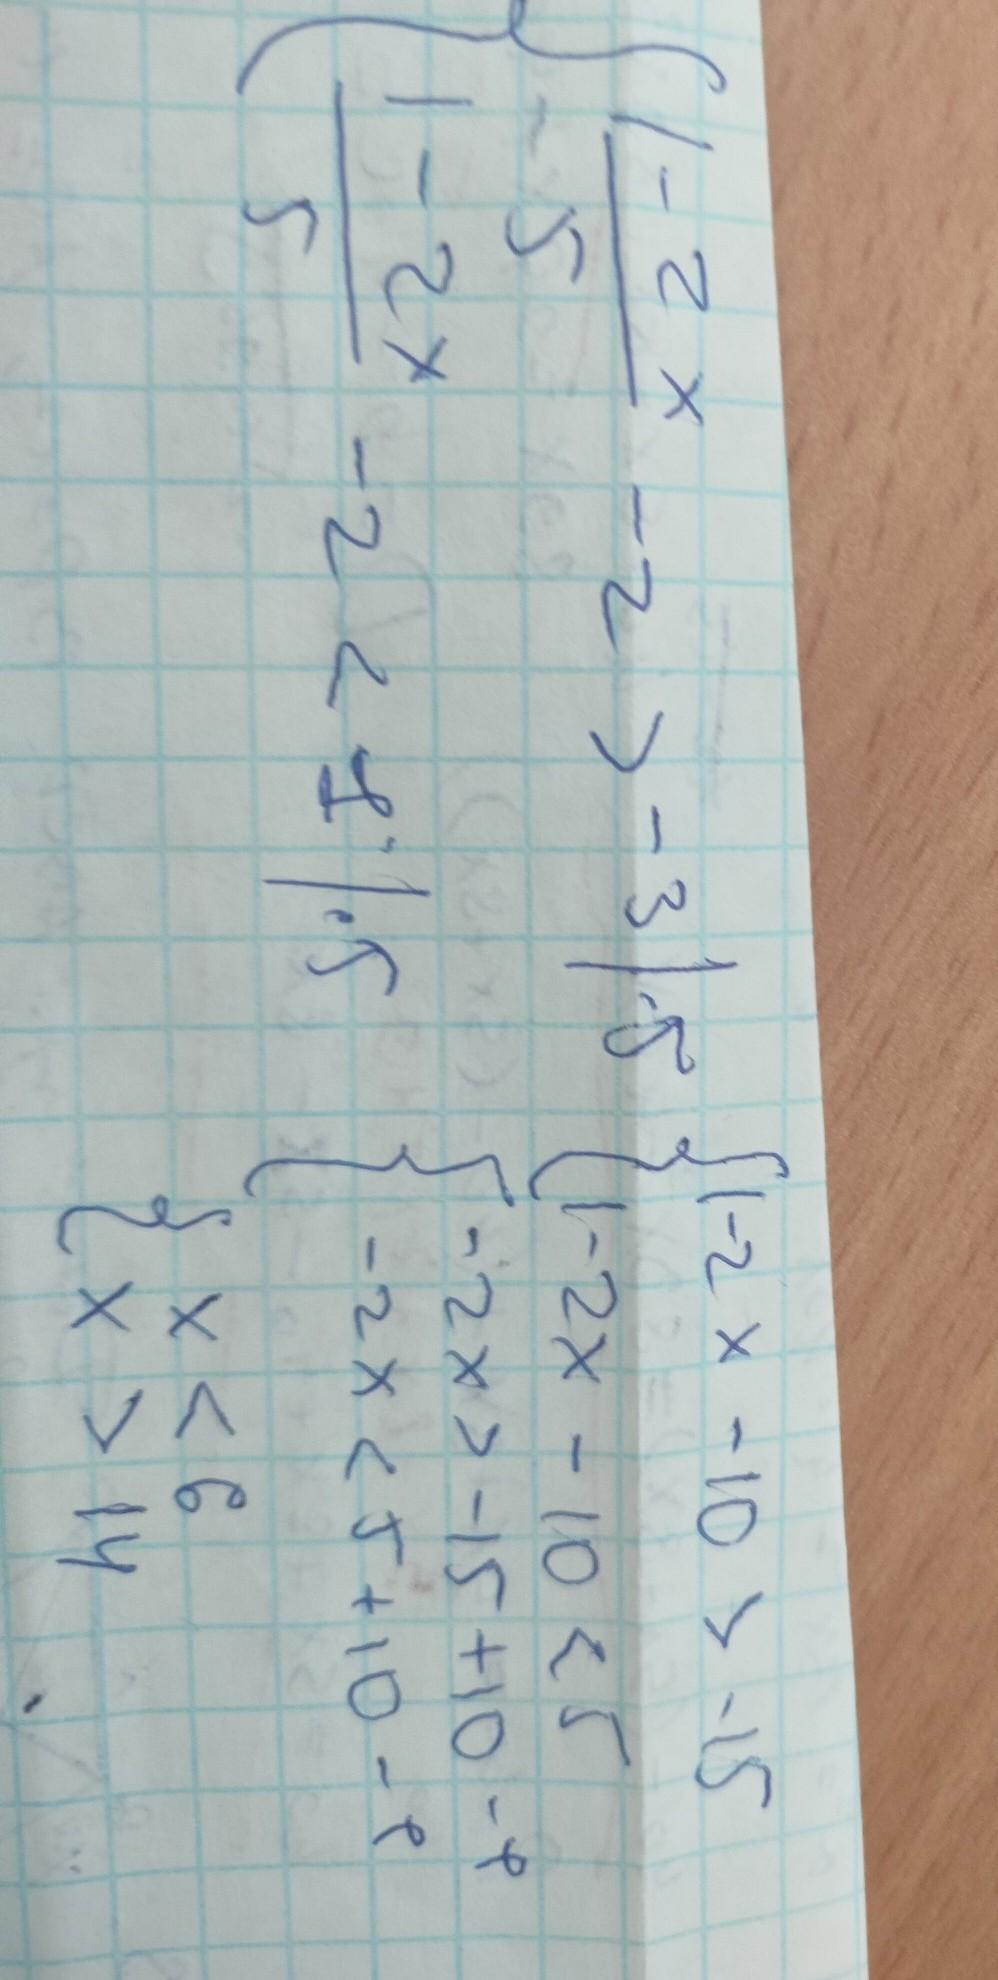 { 1-2x / 5 - 2 > -3 |·5
{ 1-2x / 5 - 2 < 1 |·5
{ 1-2x - 10 > -15
{ 1-2x - 10 < 5
{ -2x > -15+10-1
{ -2x < 5+10-1
{ x < 6
{ x > 14